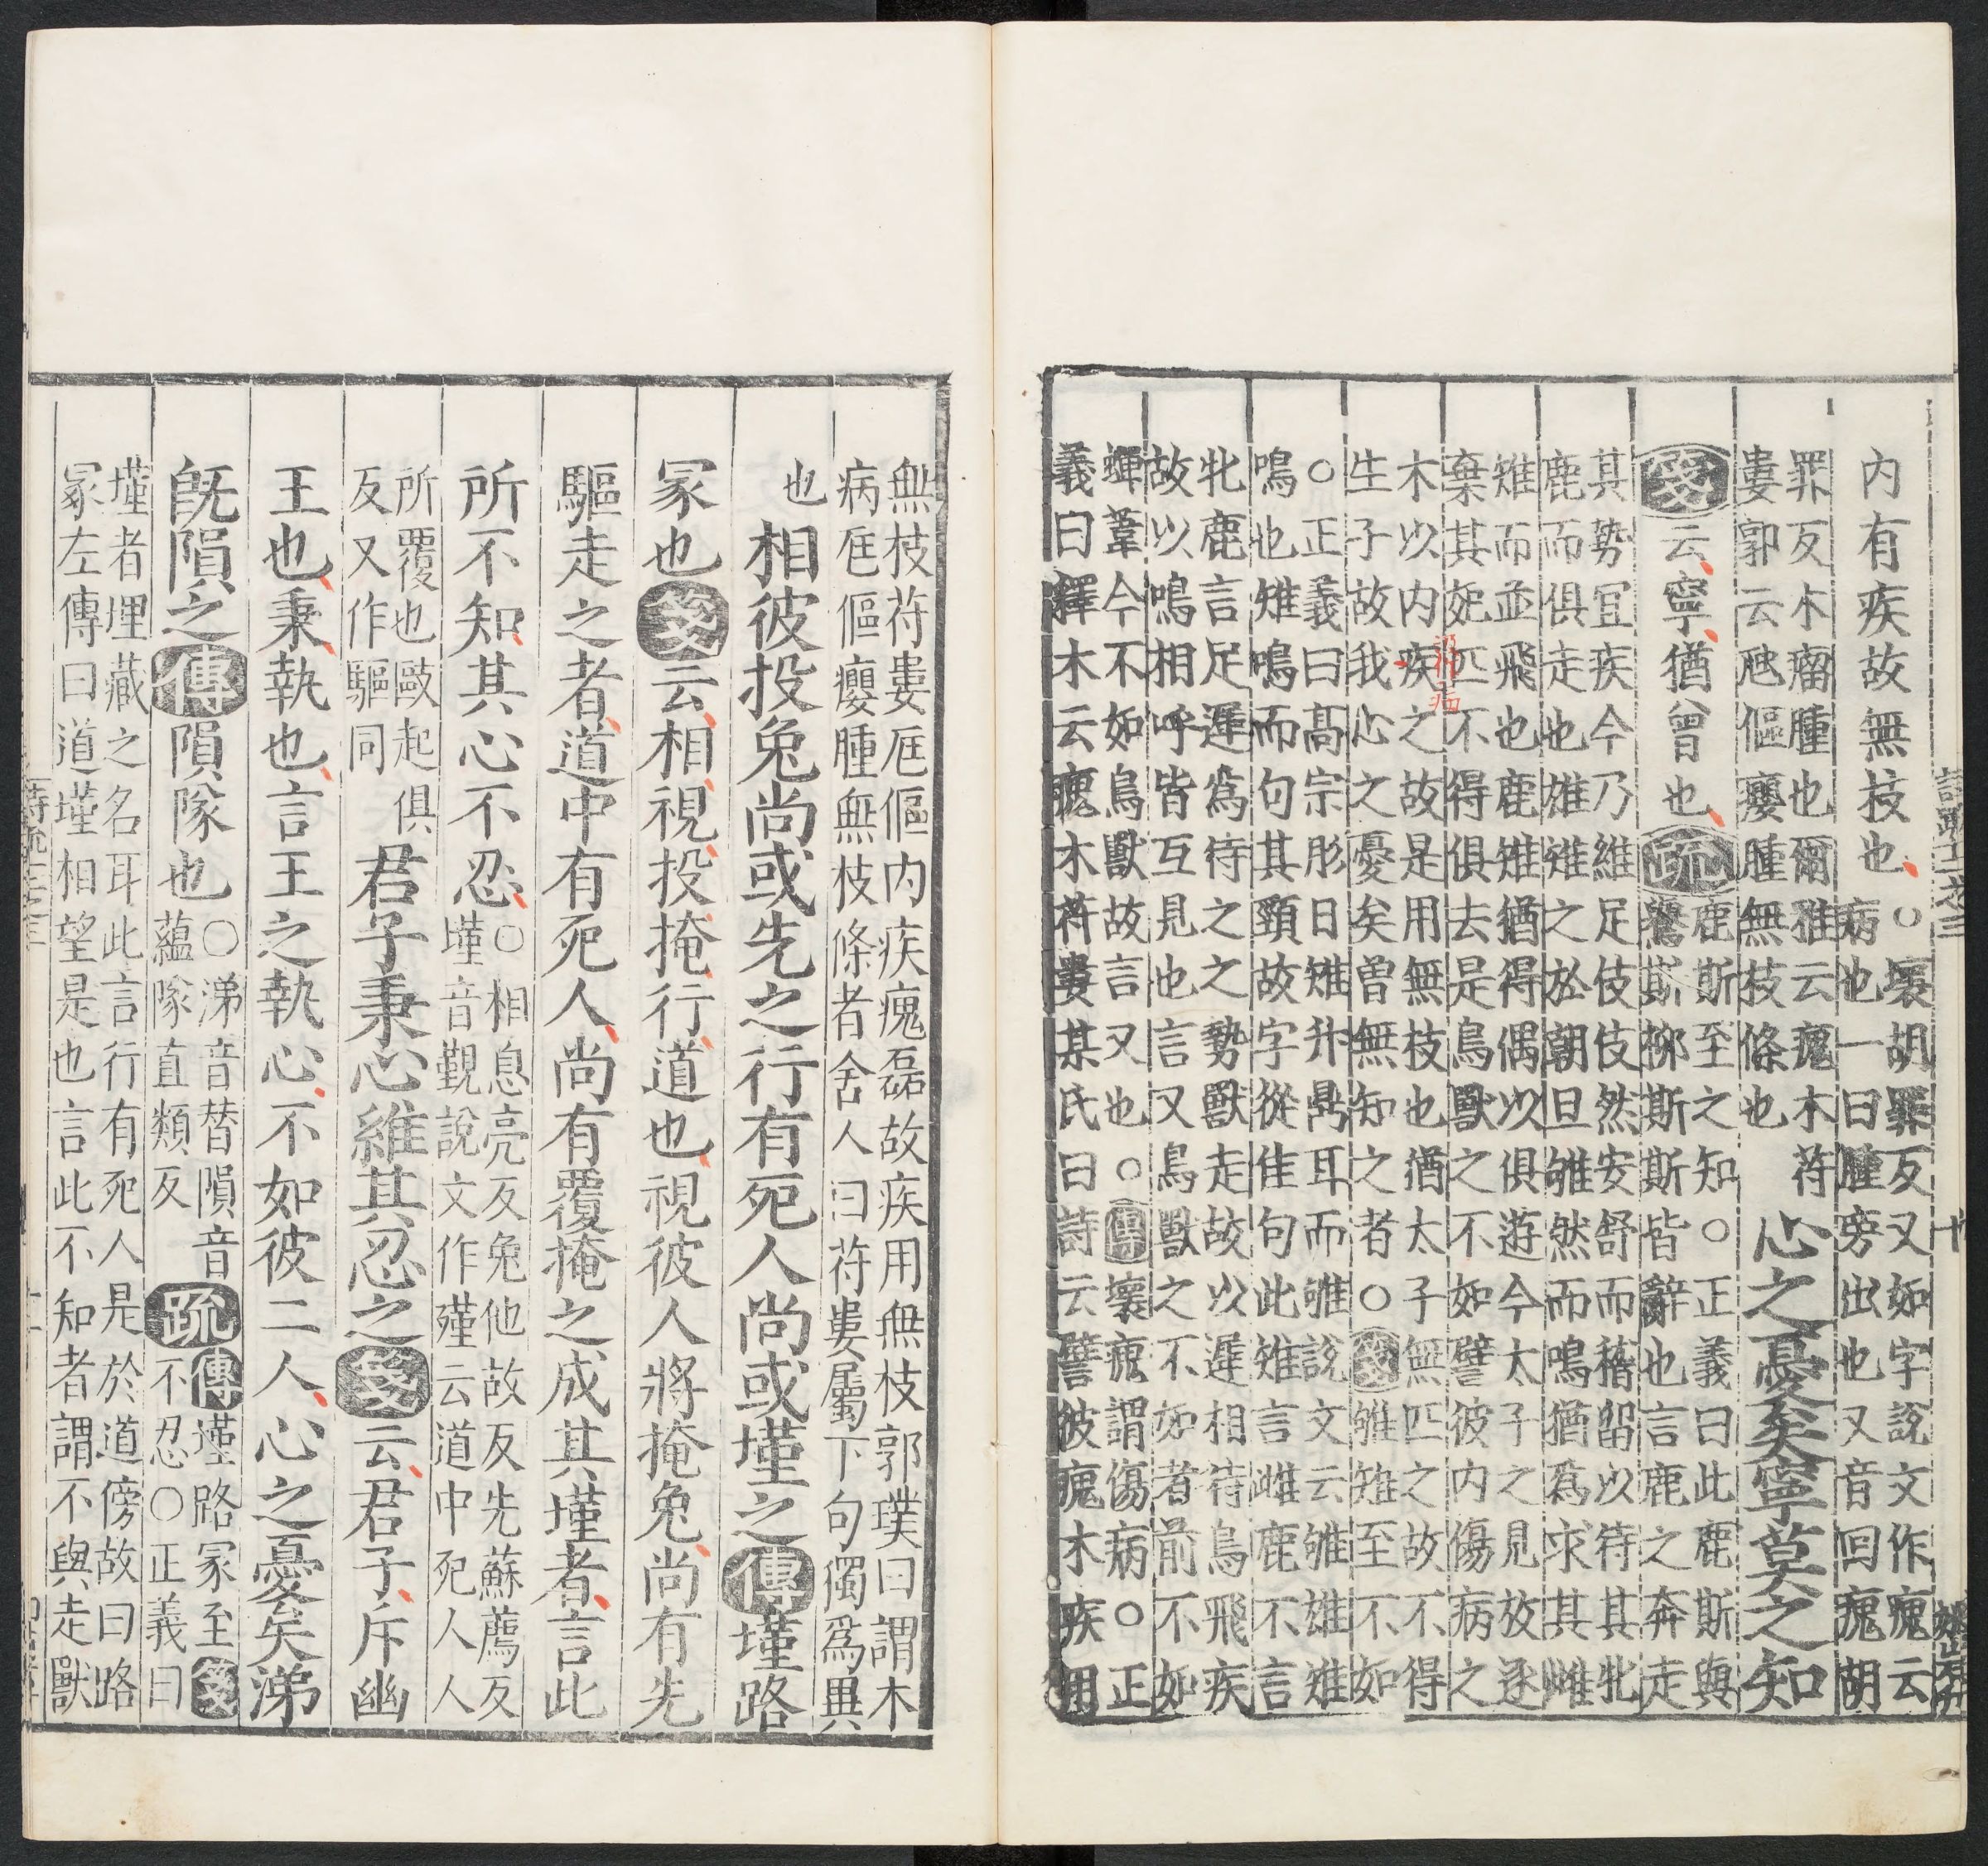 內有疾故無枝也○
壞胡罪反又如字說文作瘣云
病也一曰腫旁出也又音回瘣胡
罪反木瘤腫也爾雅云瘣木苻
婁郭云尫傴癭腫無枝條也
心之憂矣寧莫之知
箋云寧猶曾也疏
鹿斯至之知○正義曰此鹿斯與
鷽斯柳斯斯皆辭也言鹿之奔走
其勢冝疾今乃維足伎伎然安舒而稽留以待其牝
鹿而俱走也雄雉之於朝旦雊然而鳴猶爲求其雌
雉而並飛也鹿雉猶得偶以俱遊今太子之見放逐
棄其妃匹不得俱去是鳥獸之不如譬彼内傷病之
木以内疾之故是用無枝也猶太子無匹之故不得
生子故我心之憂矣曽無知之者○箋雊雉至不如
○正義曰高宗肜日雉升鼎耳而雊說文云雊雄雉
鳴也雉鳴而句其頸故字從隹句此雉言雌鹿不言
牝鹿言足遲爲待之之勢獸走故以遲相待鳥飛疾
故以鳴相呼皆互見也言又鳥獸之不如者前不如
蟬葦今不如鳥獸故言又也○傳壞瘣謂傷病○正
義曰釋木云瘣木苻婁某氏曰詩云譬彼瘣木疾用
無枝苻婁尫傴内疾瘣磊故疾用無枝郭璞曰謂木
病尫傴癭腫無枝條者舍人曰苻婁屬下句獨爲異
也
相彼投兔尚或先之行有死人尚或墐之傳墐路
冢也箋云相視投掩行道也視彼人將掩兔尚有先
驅走之者道中有死人尚有覆掩之成其墐者言此
所不知其心不忍
○相息亮反兔他故反先蘇薦反
墐音覲說文作殣云道中死人人
所覆也敺起俱
反又作驅同
君子秉心維其忍之箋云君子斥幽
王也秉執也言王之執心不如彼二人心之憂矣涕
旣隕之傳隕隊也
○涕音替隕音
蘊隊直類反
疏
傳墐路冢至箋
不忍○正義曰
墐者埋藏之名耳此言行有死人是於道傍故曰路
冢左傳曰道墐相望是也言此不知者謂不與走獸